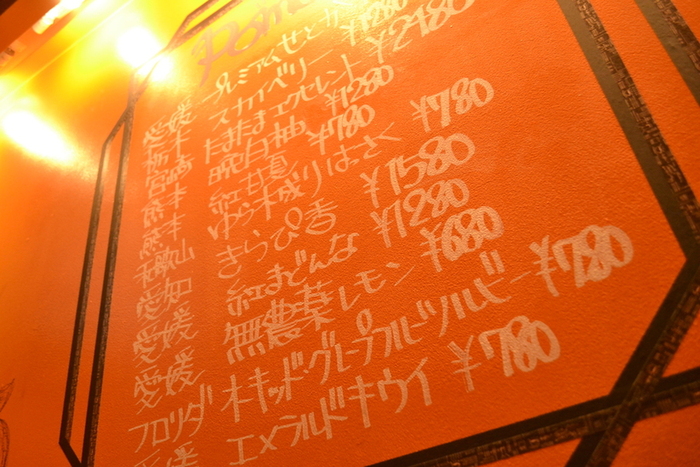 Pom
愛媛 プレミアムせとか ¥1280
栃木 スカイベリー ¥2480
宮崎 たまたまエクセレント ¥1280
熊本 晩白柚 ¥780
熊本 紅甘夏 ¥780
和歌山 ゆら木成りはっさく ¥1580
愛知 きらぴ香 ¥1280
愛媛 紅まどんな ¥680
愛媛 無農薬レモン
フロリダ オーキッド・グレープフルーツルビー ¥780
エメラルドキウイ ¥780